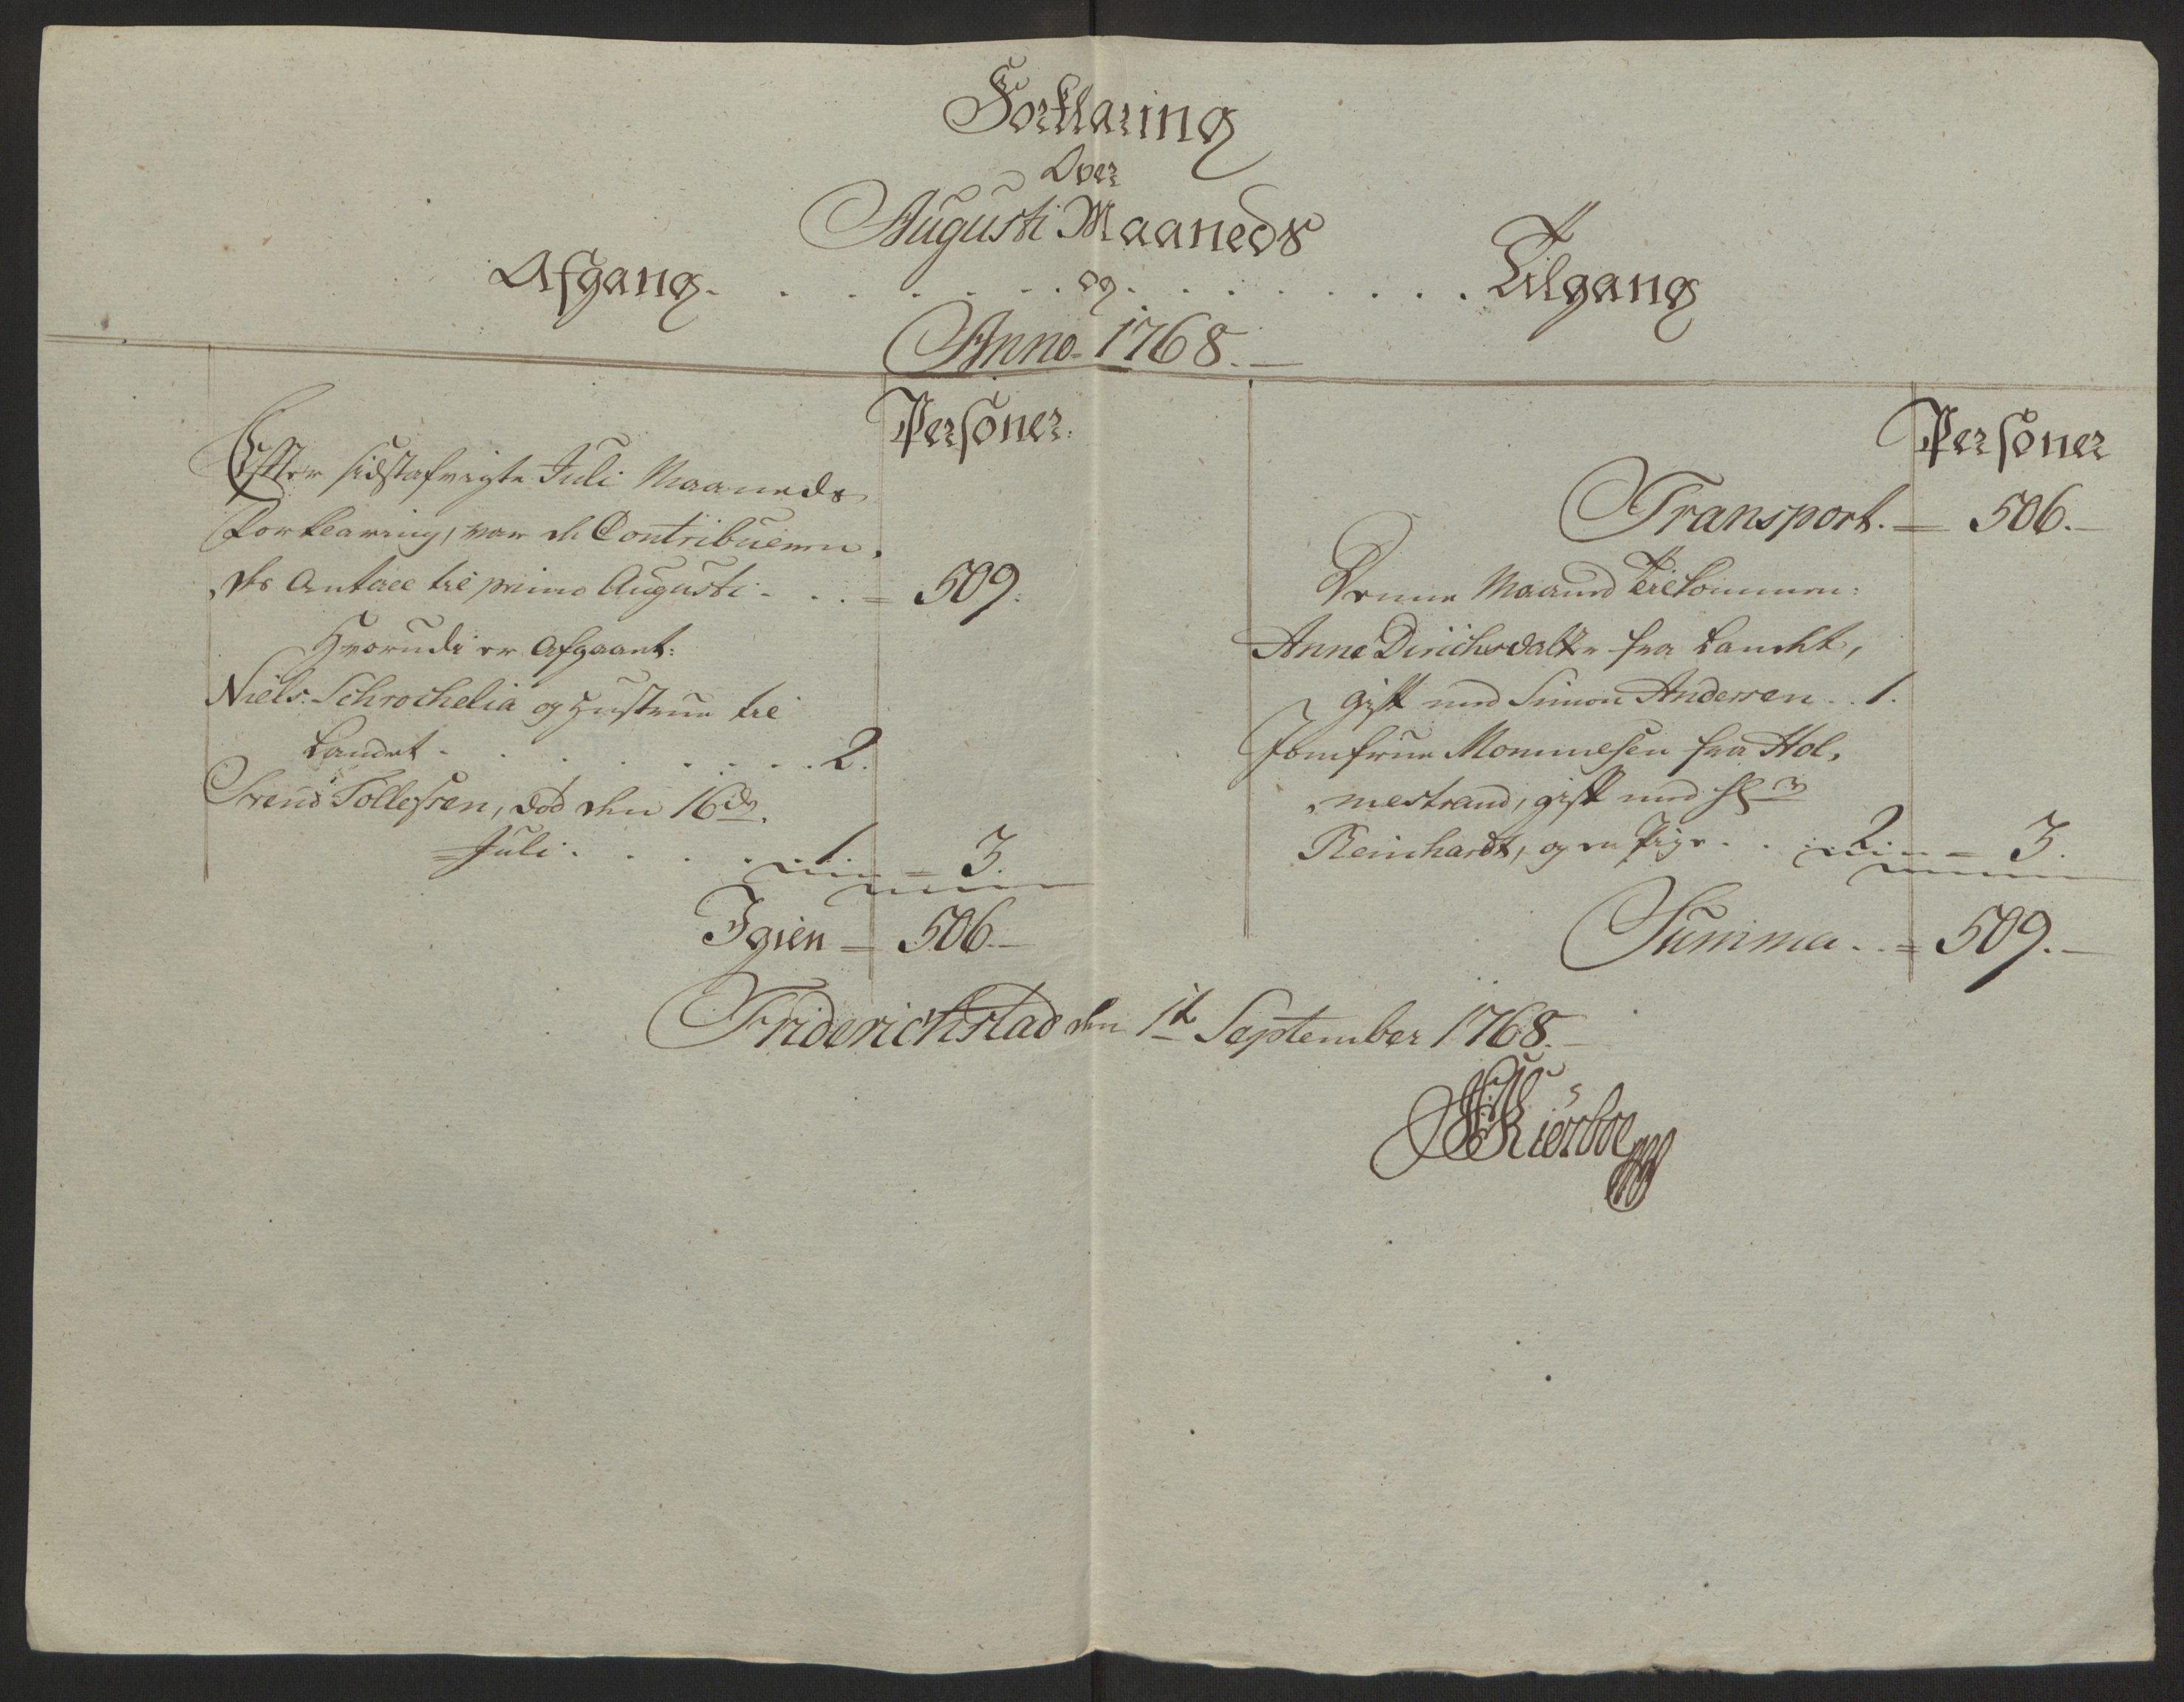 Forklaring
Over
Augusti Maaneds
Afgang. . . . . . . og. . . . . . . Tilgang
Anno 1768.
Personer.
Efter sidstafvigte Juli Maaneds
Forklaring, var de Contribueren,
,des Antall til primo Augusti . . . = 509.
Hvorudi er Afgaaet:
Niels Schrochelia og Hustrue til
Landet . . . . . . . . 2.
Svend Tollefsen, død den 16de
Juli . . . . . 1. = 3.
Igien = 506.
Personer
Transport. = 506.
Denne Maaned tilkommen:
Anne Dirichsdatter fra Landet,
gift med Simon Andersen . . 1.
Jomfrue Mommesen fra Hol,
,mestrand, gift med Hr
Reinhardt, og en Pige . . . 2. = 3.
Summa . . = 509.
Friderichstad den 1t September 1768.
Kiørboe